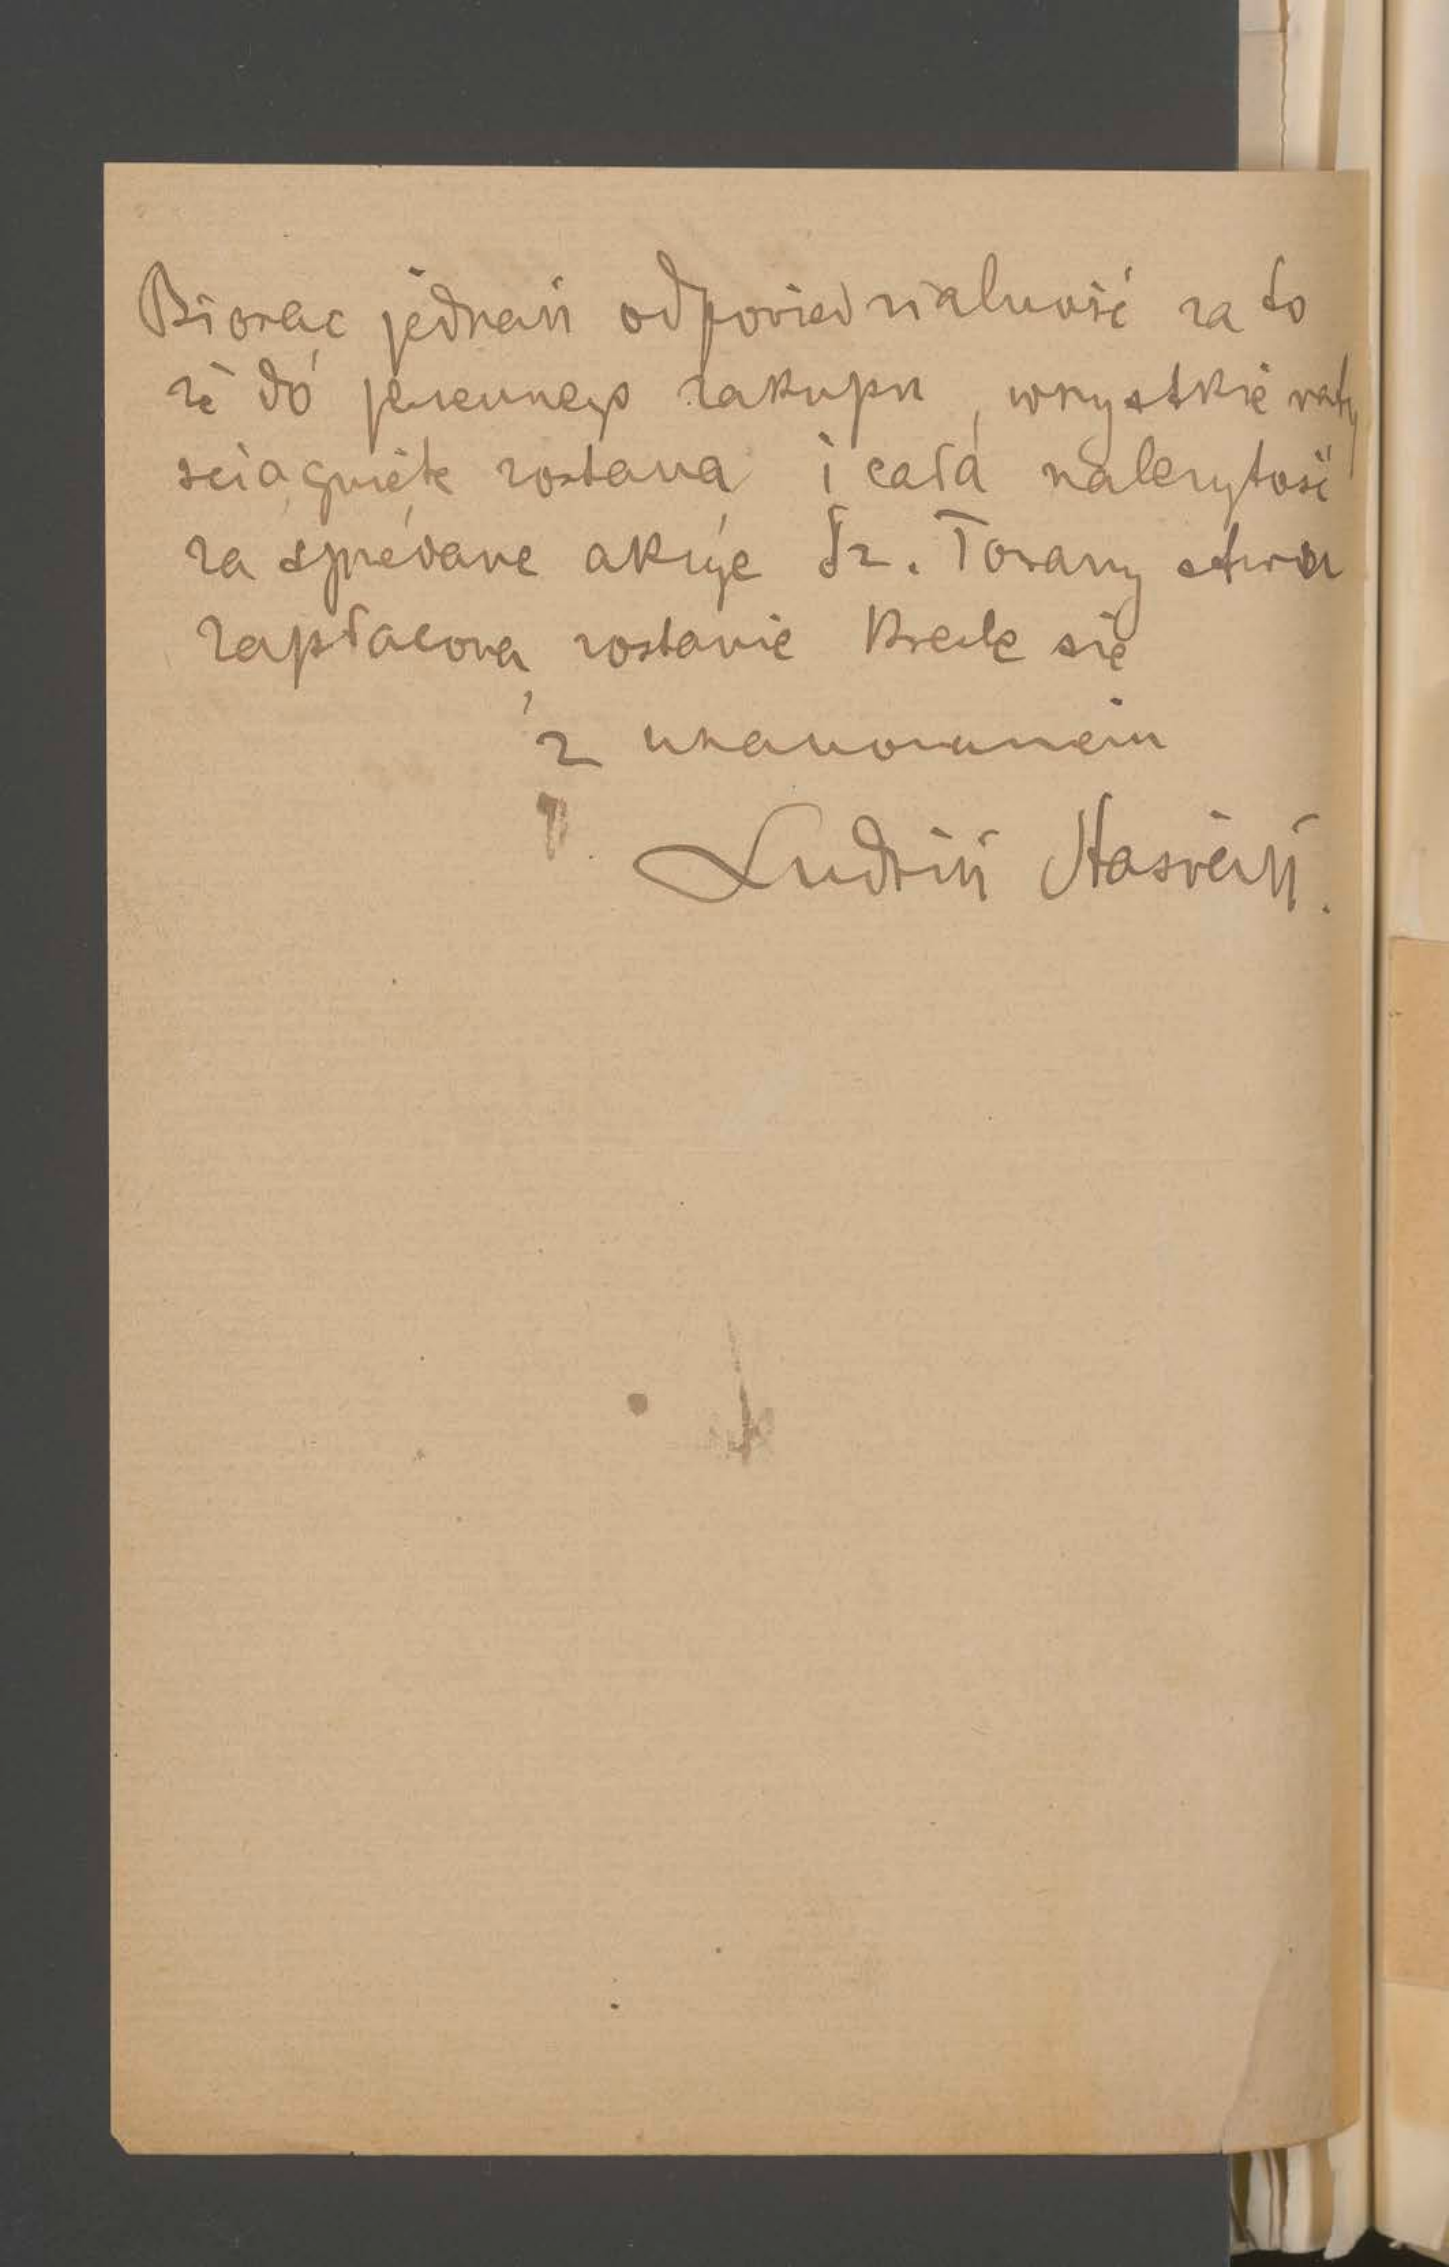 Biorąc jednak odpowiedzialność za to
że do jesiennego zakupu, wszystkie raty
sciągnięte zostaną i cała należytość
za spredane akcye Sz. Towarzystwa
zapłaconą zostanie Kreślę się
z uszanowaniem
Ludwik